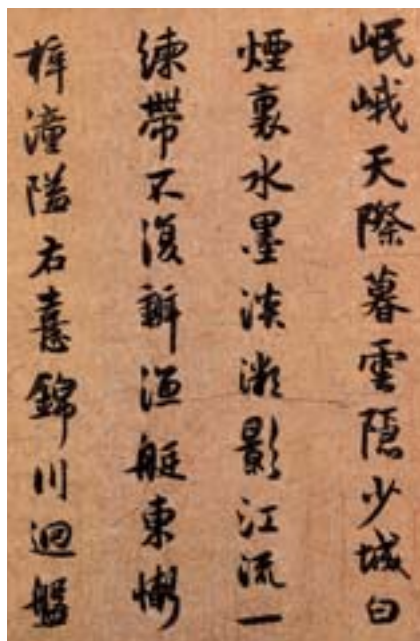 岷峨天際暮雲隱少城白
煙裏水墨淡影江流一
練帶不復辨漁艇東
梓潼隘右憙錦川迴盤